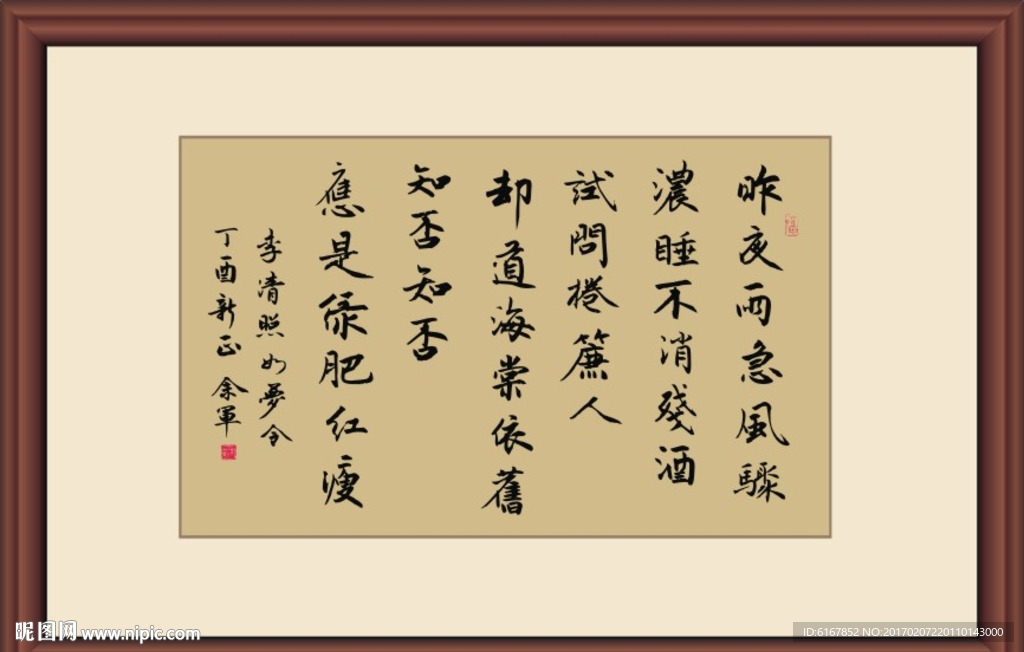 昨夜雨急風驟
濃睡不消殘酒
試問捲簾人
却道海棠依舊
知否知否
應是綠肥紅瘦
李清照如夢令
丁酉新正 余軍
昵图网 www.nipic.com
ID:6167852 NO:20170207220110143000